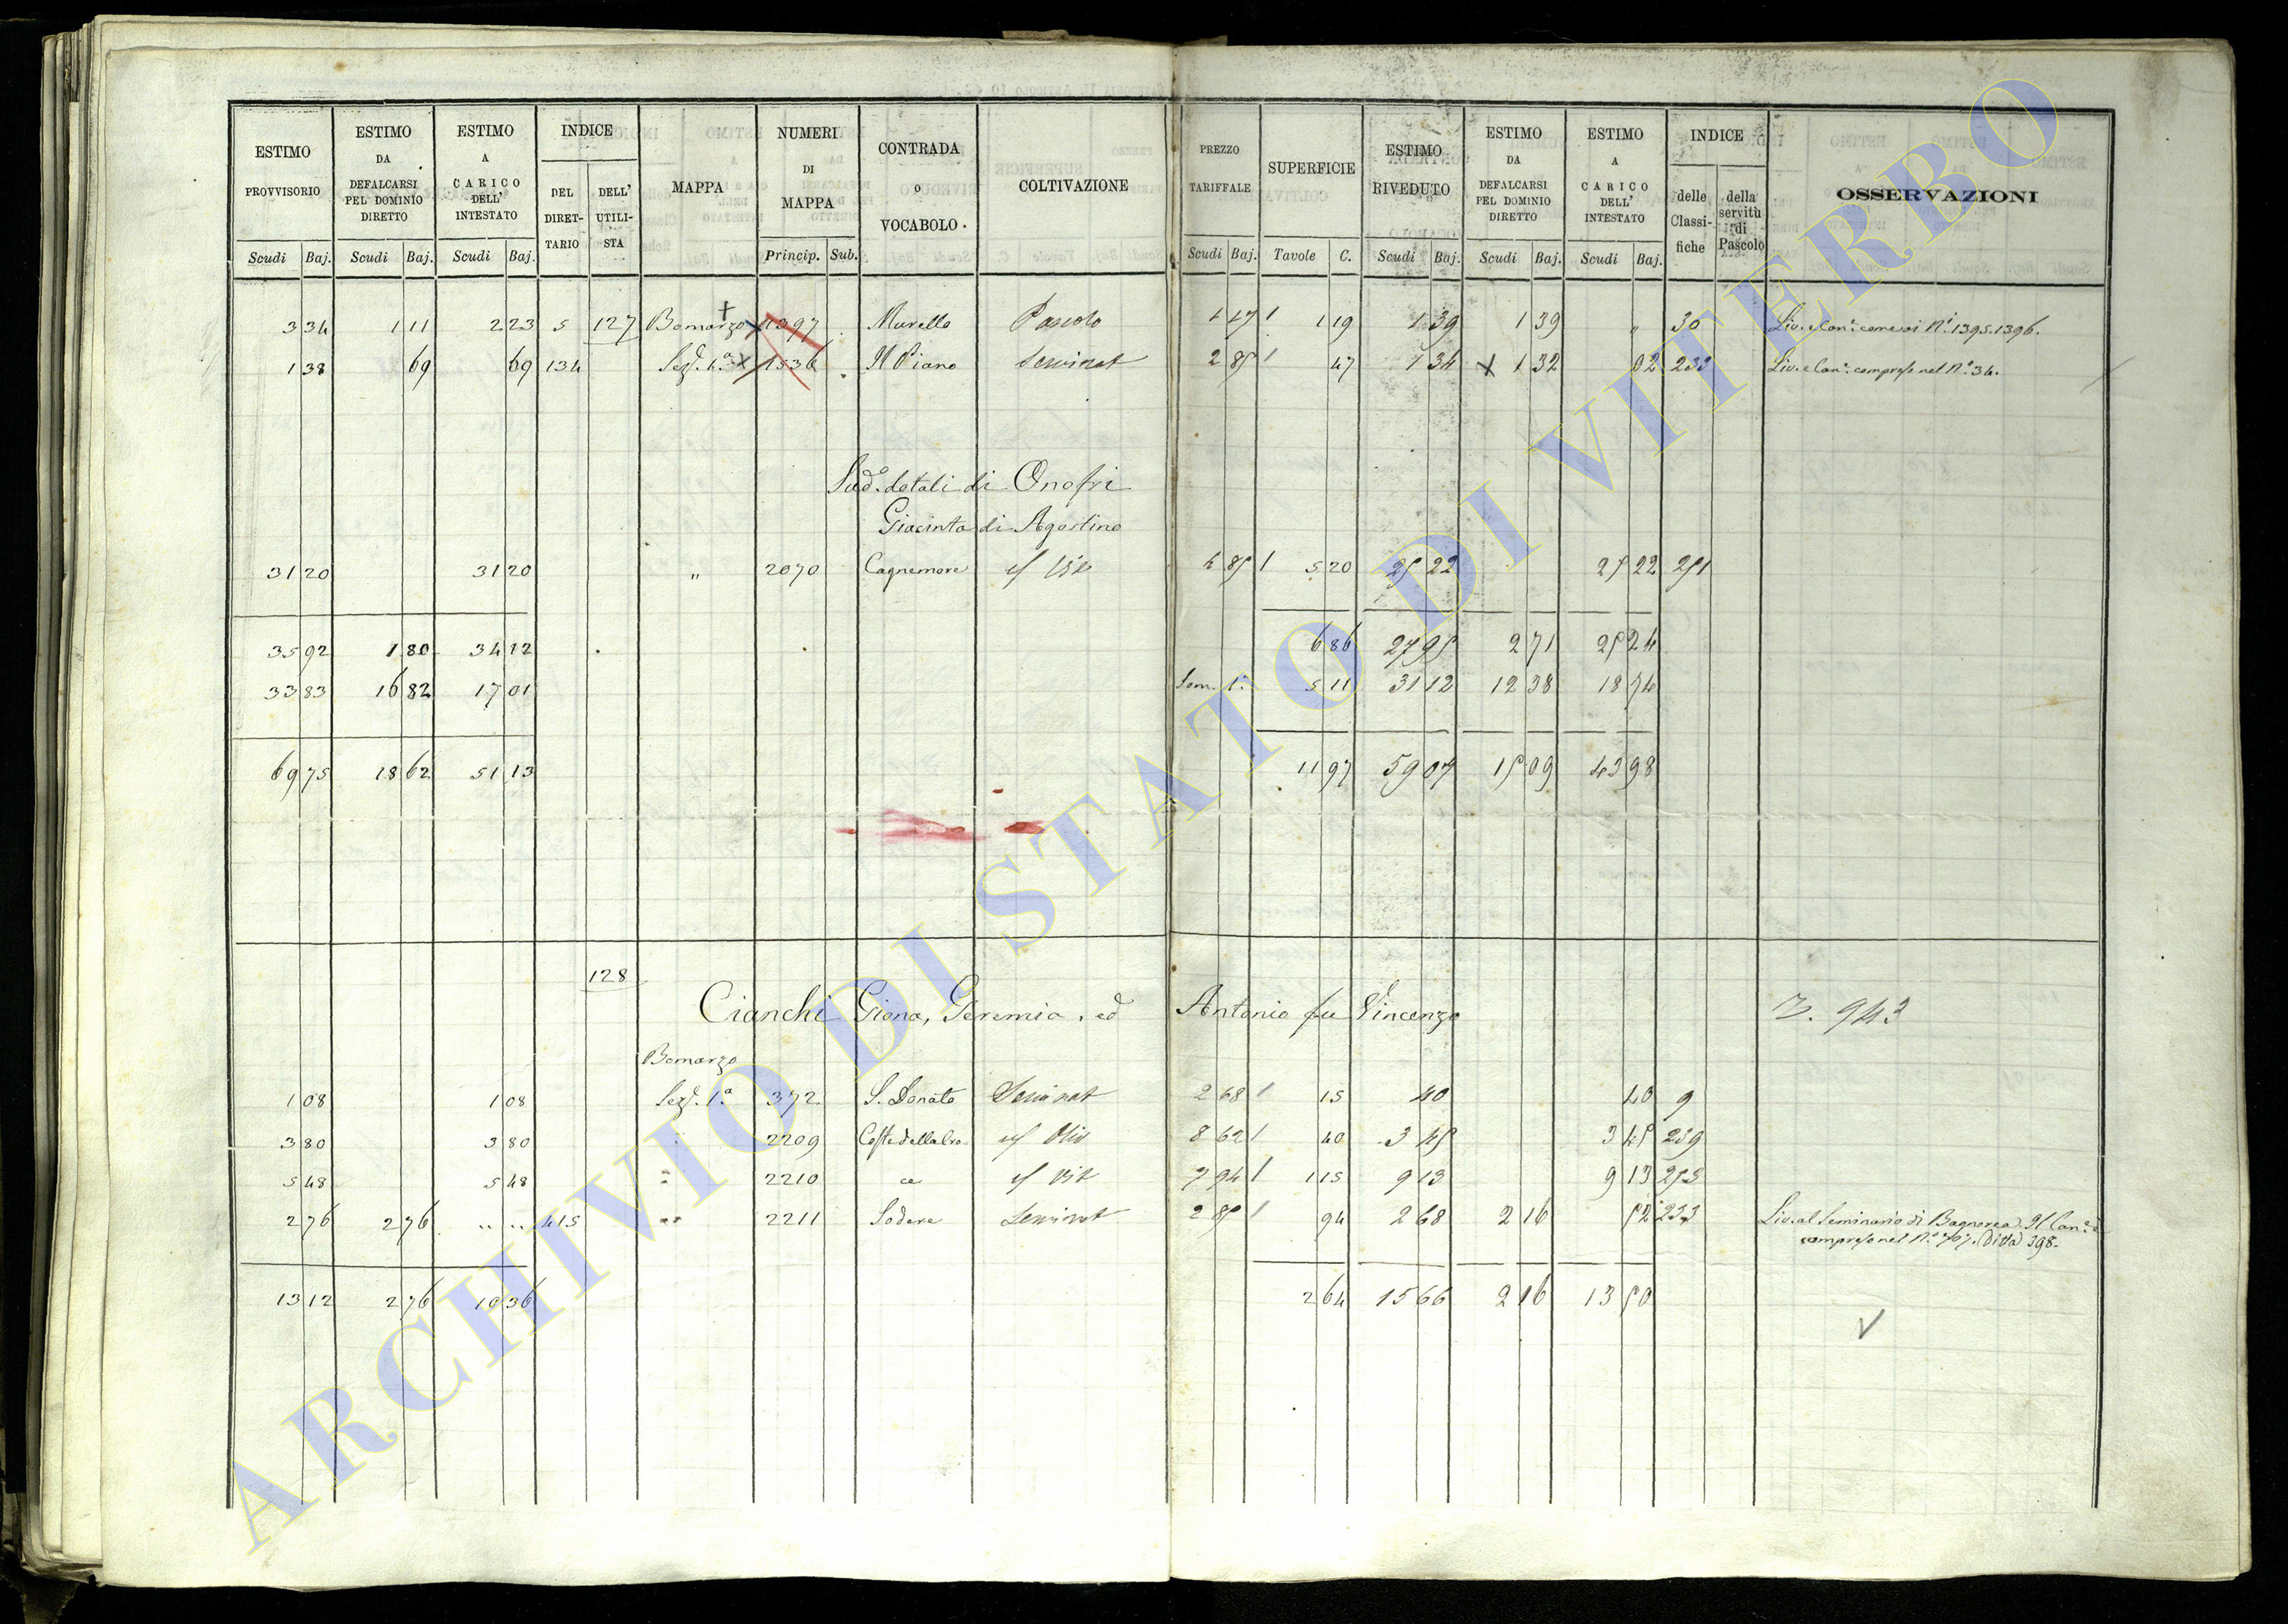 ESTIMO PROVVISORIO | ESTIMO DA DEFALCARSI PEL DOMINIO DIRETTO | ESTIMO A CARICO DELL' INTESTATO | INDICE DEL DIRETTARIO | DELL' UTILISTA | MAPPA | NUMERI DI MAPPA | CONTRADA o VOCABOLO. | COLTIVAZIONE | PREZZO TARIFFALE | SUPERFICIE | ESTIMO RIVEDUTO | ESTIMO DA DEFALCARSI PEL DOMINIO DIRETTO | ESTIMO A CARICO DELL' INTESTATO | INDICE delle Classifiche | della servitù di Pascolo | OSSERVAZIONI
Scudi | Baj. | Scudi | Baj. | Scudi | Baj. | Princip. | Sub. | Scudi | Baj. | Tavole | C. | Scudi | Baj. | Scudi | Baj. | Scudi | Baj.
3 34 | 1 11 | 2 23 | 5 | 127 | Bomarzo | 1397 | Murello | Pascolo | 1 17 | 1 19 | 1 39 | 1 39 | " | 30 | Liv. e Can. come ai N.i 1395. 1396.
1 38 | 69 | 69 | 134 | Sez. 4.a | 1536 | Il Piano | Seminat | 2 85 | 47 | 1 34 | 1 32 | 02 | 233 | Liv. e Can. compreso nel N.o 34.
Sud. dotali di Onofri
Giacinta di Agostino
31 20 | 31 20 | " | 2070 | Cagnemore | Vit | 4 85 | 5 20 | 25 22 | 25 22 | 251
35 92 | 1 80 | 34 12 | 6 86 | 27 95 | 2 71 | 25 24
33 83 | 16 82 | 17 01 | Som. 1.a | 5 11 | 31 12 | 12 38 | 18 74
69 75 | 18 62 | 51 13 | 11 97 | 59 07 | 15 09 | 43 98
128
Cianchi Giona, Geremia, ed Antonio fu Vincenzo
Bomarzo
1 08 | 1 08 | Sez. 1.a | 372 | S. Donato | Seminat | 2 68 | 15 | 40 | 40 | 9
3 80 | 3 80 | " | 2209 | Coste della Cro. | Oliv | 8 62 | 40 | 3 45 | 3 45 | 239
5 48 | 5 48 | " | 2210 | Vit | 7 94 | 1 15 | 9 13 | 9 13 | 253
2 76 | 2 76 | " " | 415 | " | 2211 | Sodere | Seminat | 2 85 | 94 | 2 68 | 2 16 | 52 | 233 | Liv. al Seminario di Bagnorea. Il Can. è
compreso nel N.o 707. Ditta 398.
13 12 | 2 76 | 10 36 | 2 64 | 15 66 | 2 16 | 13 50
ARCHIVIO DI STATO DI VITERBO